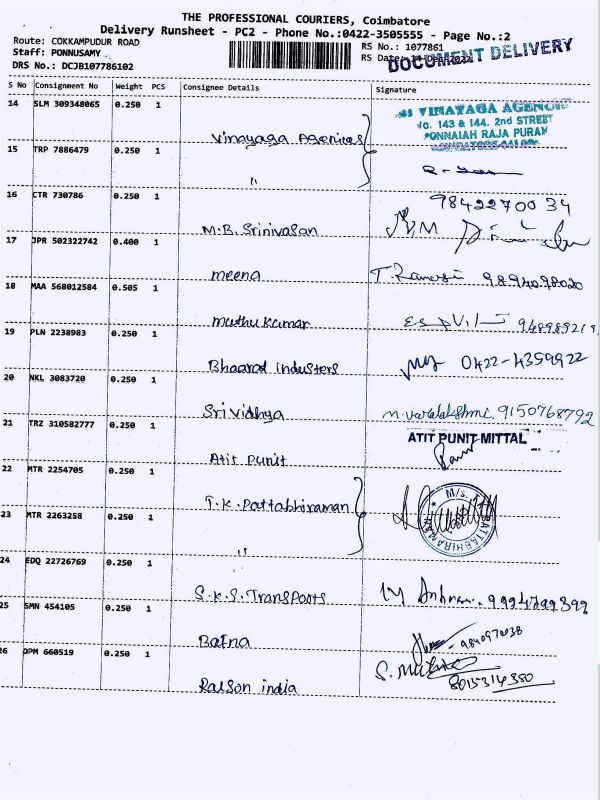 THE PROFESSIONAL COURIERS, Coimbatore
Delivery Runsheet - PC2 - Phone No.:0422-3505555 - Page No.:2
Route: COKKAMPUDUR ROAD
RS No.: 1077861
Staff: PONNUSAMY
RS Date:
DOCUMENT DELIVERY
DRS No.: DCJB107786102
S No Consignment No Weight PCS Consignee Details Signature
14 SLM 309348065 0.250 1 Vinayaga Agenices
VINAYAGA AGENCIES
No. 143 & 144. 2nd STREET
PONNAIAH RAJA PURAM
15 TRP 7886479 0.250 1 "
16 CTR 730786 0.250 1 M.B. Srinivasan
9842270034
17 JPR 502322742 0.400 1 meena
9894098020
18 MAA 568012584 0.505 1 muthu kumar
19 PLN 2238983 0.250 1 Bhaarad industers 0422-4359922
20 NKL 3083720 0.250 1 Sri vidhya 9150768792
21 TRZ 310582777 0.250 1 Atit Punit
ATIT PUNIT MITTAL
22 MTR 2254705 0.250 1 T.K. Pattabhiraman
M/s.
23 MTR 2263258 0.250 1 "
24 EDQ 22726769 0.250 1 S.K.S. Transpoots
25 SMN 454105 0.250 1 Bafna
26 DPM 660519 0.250 1 Ralson india
8015314380